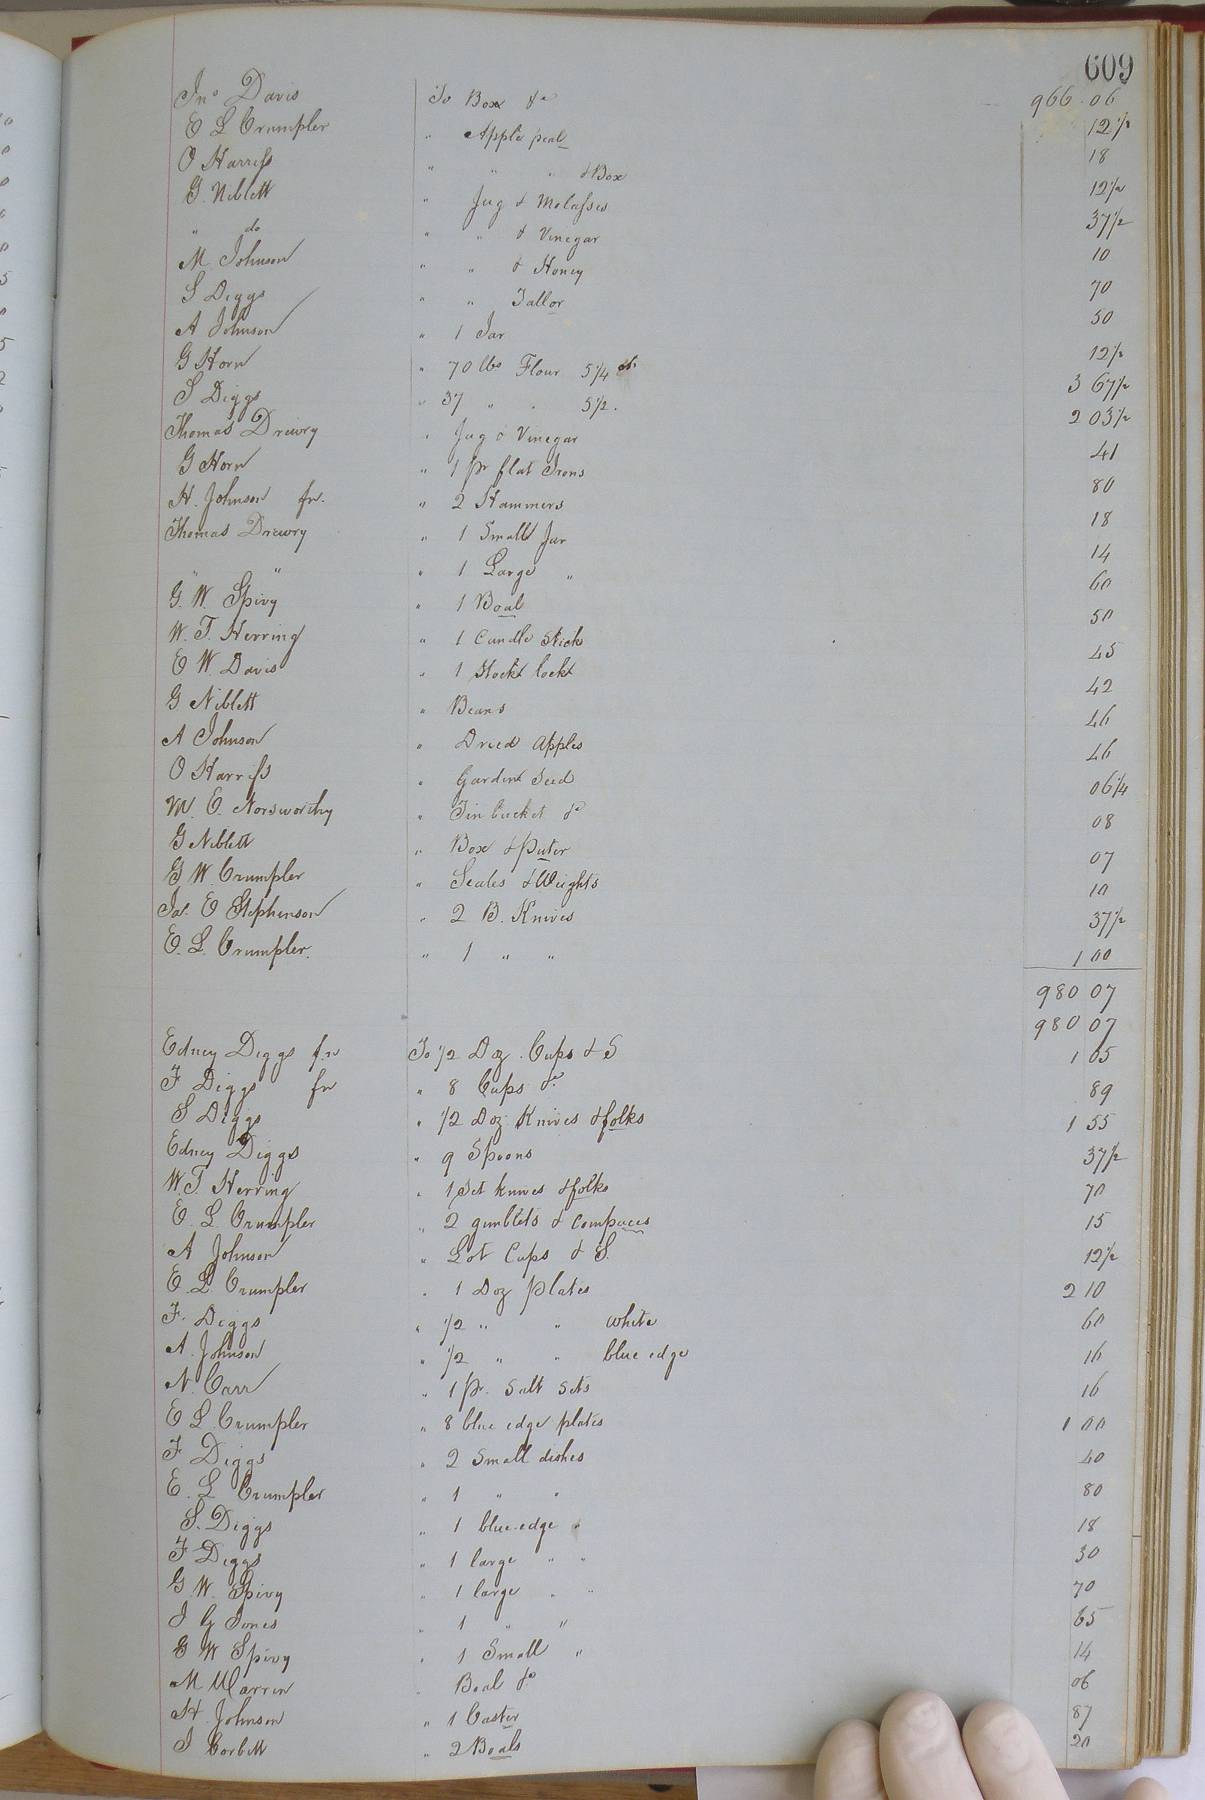 609
966 06
Jno Davis To Box &c 12 1/2
E L Crumpler " Apple peal 18
O Harriss " " " & Box 12 1/2
G. Niblett " Jug & Molasses 37 1/2
" do " " & Vinegar 10
M. Johnson " " & Honey 70
S Diggs " " Tallor 50
A Johnson " 1 Jar 12 1/2
G Horn " 70 lbs Flour 5 1/4 cts 3 67 1/2
S Diggs " 37 " " 5 1/2. 2 03 1/2
Thomas Drewry " Jug & Vinegar 41
G Horn " 1 pr flat Irons 80
H. Johnson Jr. " 2 Hammers 18
Thomas Drewry " 1 Small Jar 14
" " " 1 Large " 60
G. W. Spivy " 1 Boal 50
W. T. Herring " 1 Candle Stick 45
E W. Davis " 1 Stockt lockt 42
G Niblett " Beans 46
A Johnson " Dried Apples 46
O Harriss " Gardint Seed 06 1/4
M. E. Norsworthy " Tin bucket &c 08
G Niblett " Box & Puter 07
G W. Crumpler " Scales & Weights 10
Jas. E Stephenson " 2 B. Knives 37 1/2
E. L. Crumpler. " 1 " " 1 00
980 07
980 07
Edney Diggs Jr To 1/2 Doz. Cups & S 1 05
F Diggs Jr " 8 Cups &c 89
S Diggs " 1/2 Doz Knives & folks 1 55
Edney Diggs " 9 Spoons 37 1/2
W. T. Herring " 1 Set knives & folks 70
E. L. Crumpler " 2 gimblets & compaces 15
A Johnson " Lot Cups & S. 12 1/2
E L. Crumpler " 1 Doz plates 2 10
F. Diggs " 1/2 " " white 60
A. Johnson " 1/2 " " blue edge 16
N. Carr " 1 pr. Salt Sets 16
E L Crumpler " 8 blue edge plates 1 00
F Diggs " 2 Small dishes 40
E. L Crumpler " 1 " " 80
S. Diggs " 1 blue edge " 18
F Diggs " 1 large " " 30
G W. Spivy " 1 large " " 70
J G Jones " 1 " " 65
G W Spivy " 1 Small " 14
M Warren " Boal &c 06
H. Johnson " 1 Caster 87
J Corbett " 2 Boals 20